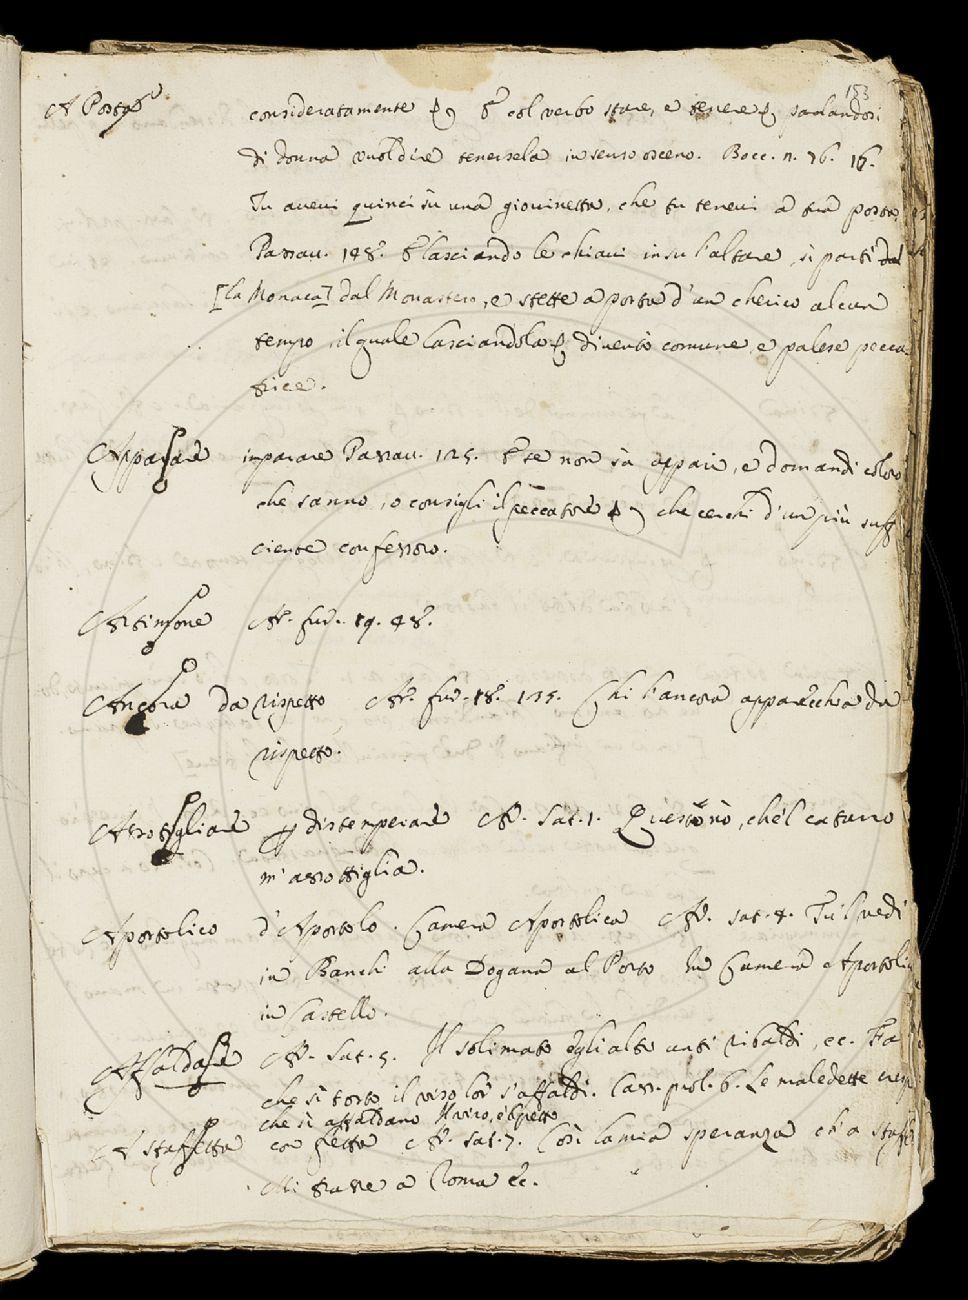 153
A Posta consideratamente E col verbo stare, e tenere parlandosi
di donna vuol dire tenersela in senso osceno. Bocc. n. 76. 16.
Tu avevi quinci sù una giovinetta, che tu tenevi a tua posta
Passav. 148. E lasciando le chiavi in su l'altare, si partì dal
[la Monaca] dal Monastero, e stette a posta d'un cherico alcun
tempo, il quale lasciandola diventò comune, e palese pecca-
trice.
Apparare imparare Passav. 125. E se non sa appari, e domandi coloro
che sanno, o consigli il peccatore che cerchi d'un più suffi
ciente confessoro.
Artimone Ar. fur. 19. 48.
Ancora da rispetto Ar. fur. 18. 135. Chi l'ancora apparecchia da
rispetto.
Assottigliare distemperare Ar. Sat. 1. che'l catarro
m'assottiglia.
Apostolico d'Apostolo. Camera Apostolica Ar. sat. 4. Tu'l vedi
in Banchi alla Dogana al Porto In Camera Apostoli
in Castello.
Affaldare Ar. Sat. 5. Il solimato e gli altri unti ribaldi, ec. Fa
che sì tosto il viso lor s'affaldi. Cass. prol. 6. Le maledette cresp
che sì affaldano il viso, e'l petto
A staffetta con fretta Ar. sat. 7. Così la mia speranza ch'a staff
Mi trasse a Roma ec.